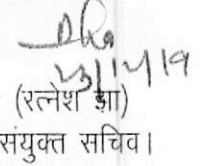 23/1/19
(रत्नेश झा)
संयुक्त सचिव।